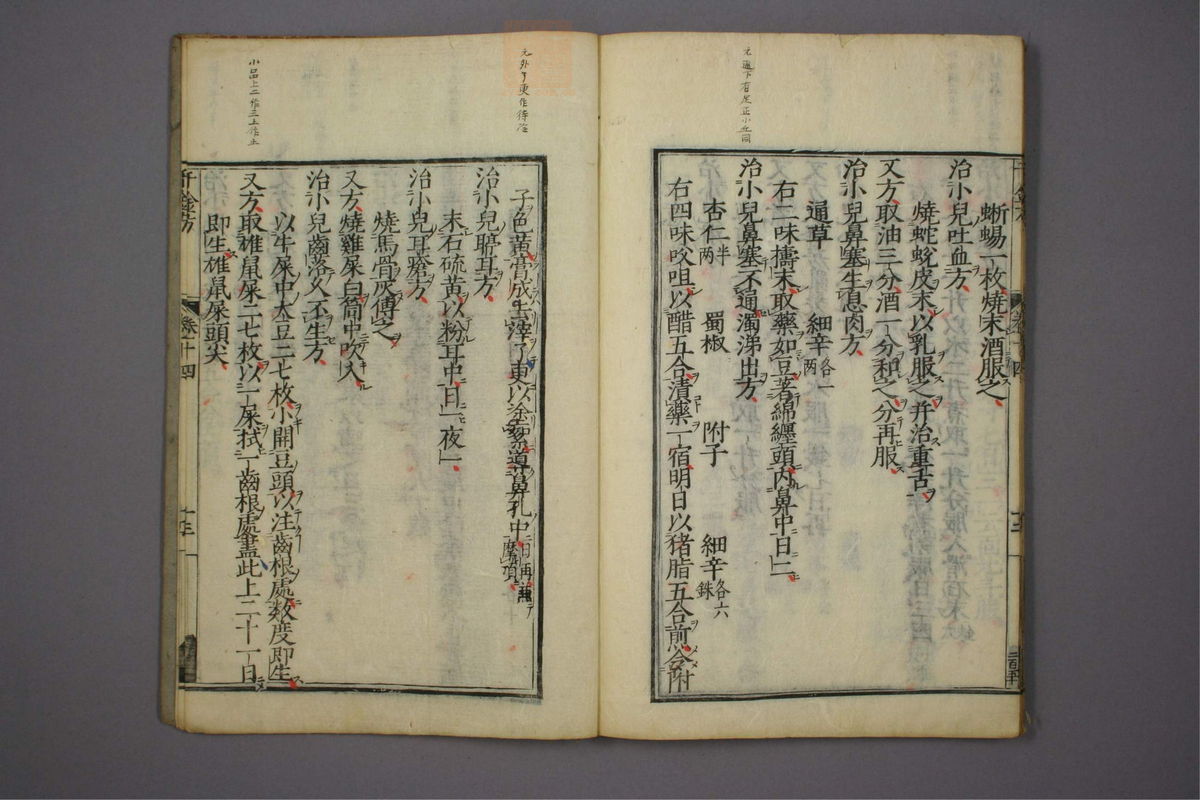 元通下有足正小丘同
蜥蜴一枚燒末酒服之
治小兒吐血方
燒蛇蛻皮末以乳服之并治重舌
又方取油三分酒一分和之分再服
治小兒鼻塞生息肉方
通草　細辛各一兩
右二味擣末取藥如豆著綿纏頭內鼻中日二
治小兒鼻塞不通濁涕出方
杏仁半兩　蜀椒　附子　細辛各六銖
右四味㕮咀以醋五合漬藥一宿明日以豬脂五合煎令附
元外了更作待冷
子色黃膏成去滓了更以塗絮導鼻孔中日再兼摩頂
治小兒聤耳方
末石硫黃以粉耳中日一夜一
治小兒耳瘡方
燒馬骨灰傅之
又方燒雞屎白筒中吹入
治小兒齒落久不生方
以牛屎中大豆二七枚小開豆頭以注齒根處數度即生
又方取雄鼠屎二七枚以一屎拭一齒根處盡此上二十一日
即生雄鼠屎頭尖
小品上二作三上作止
千金方　卷十四